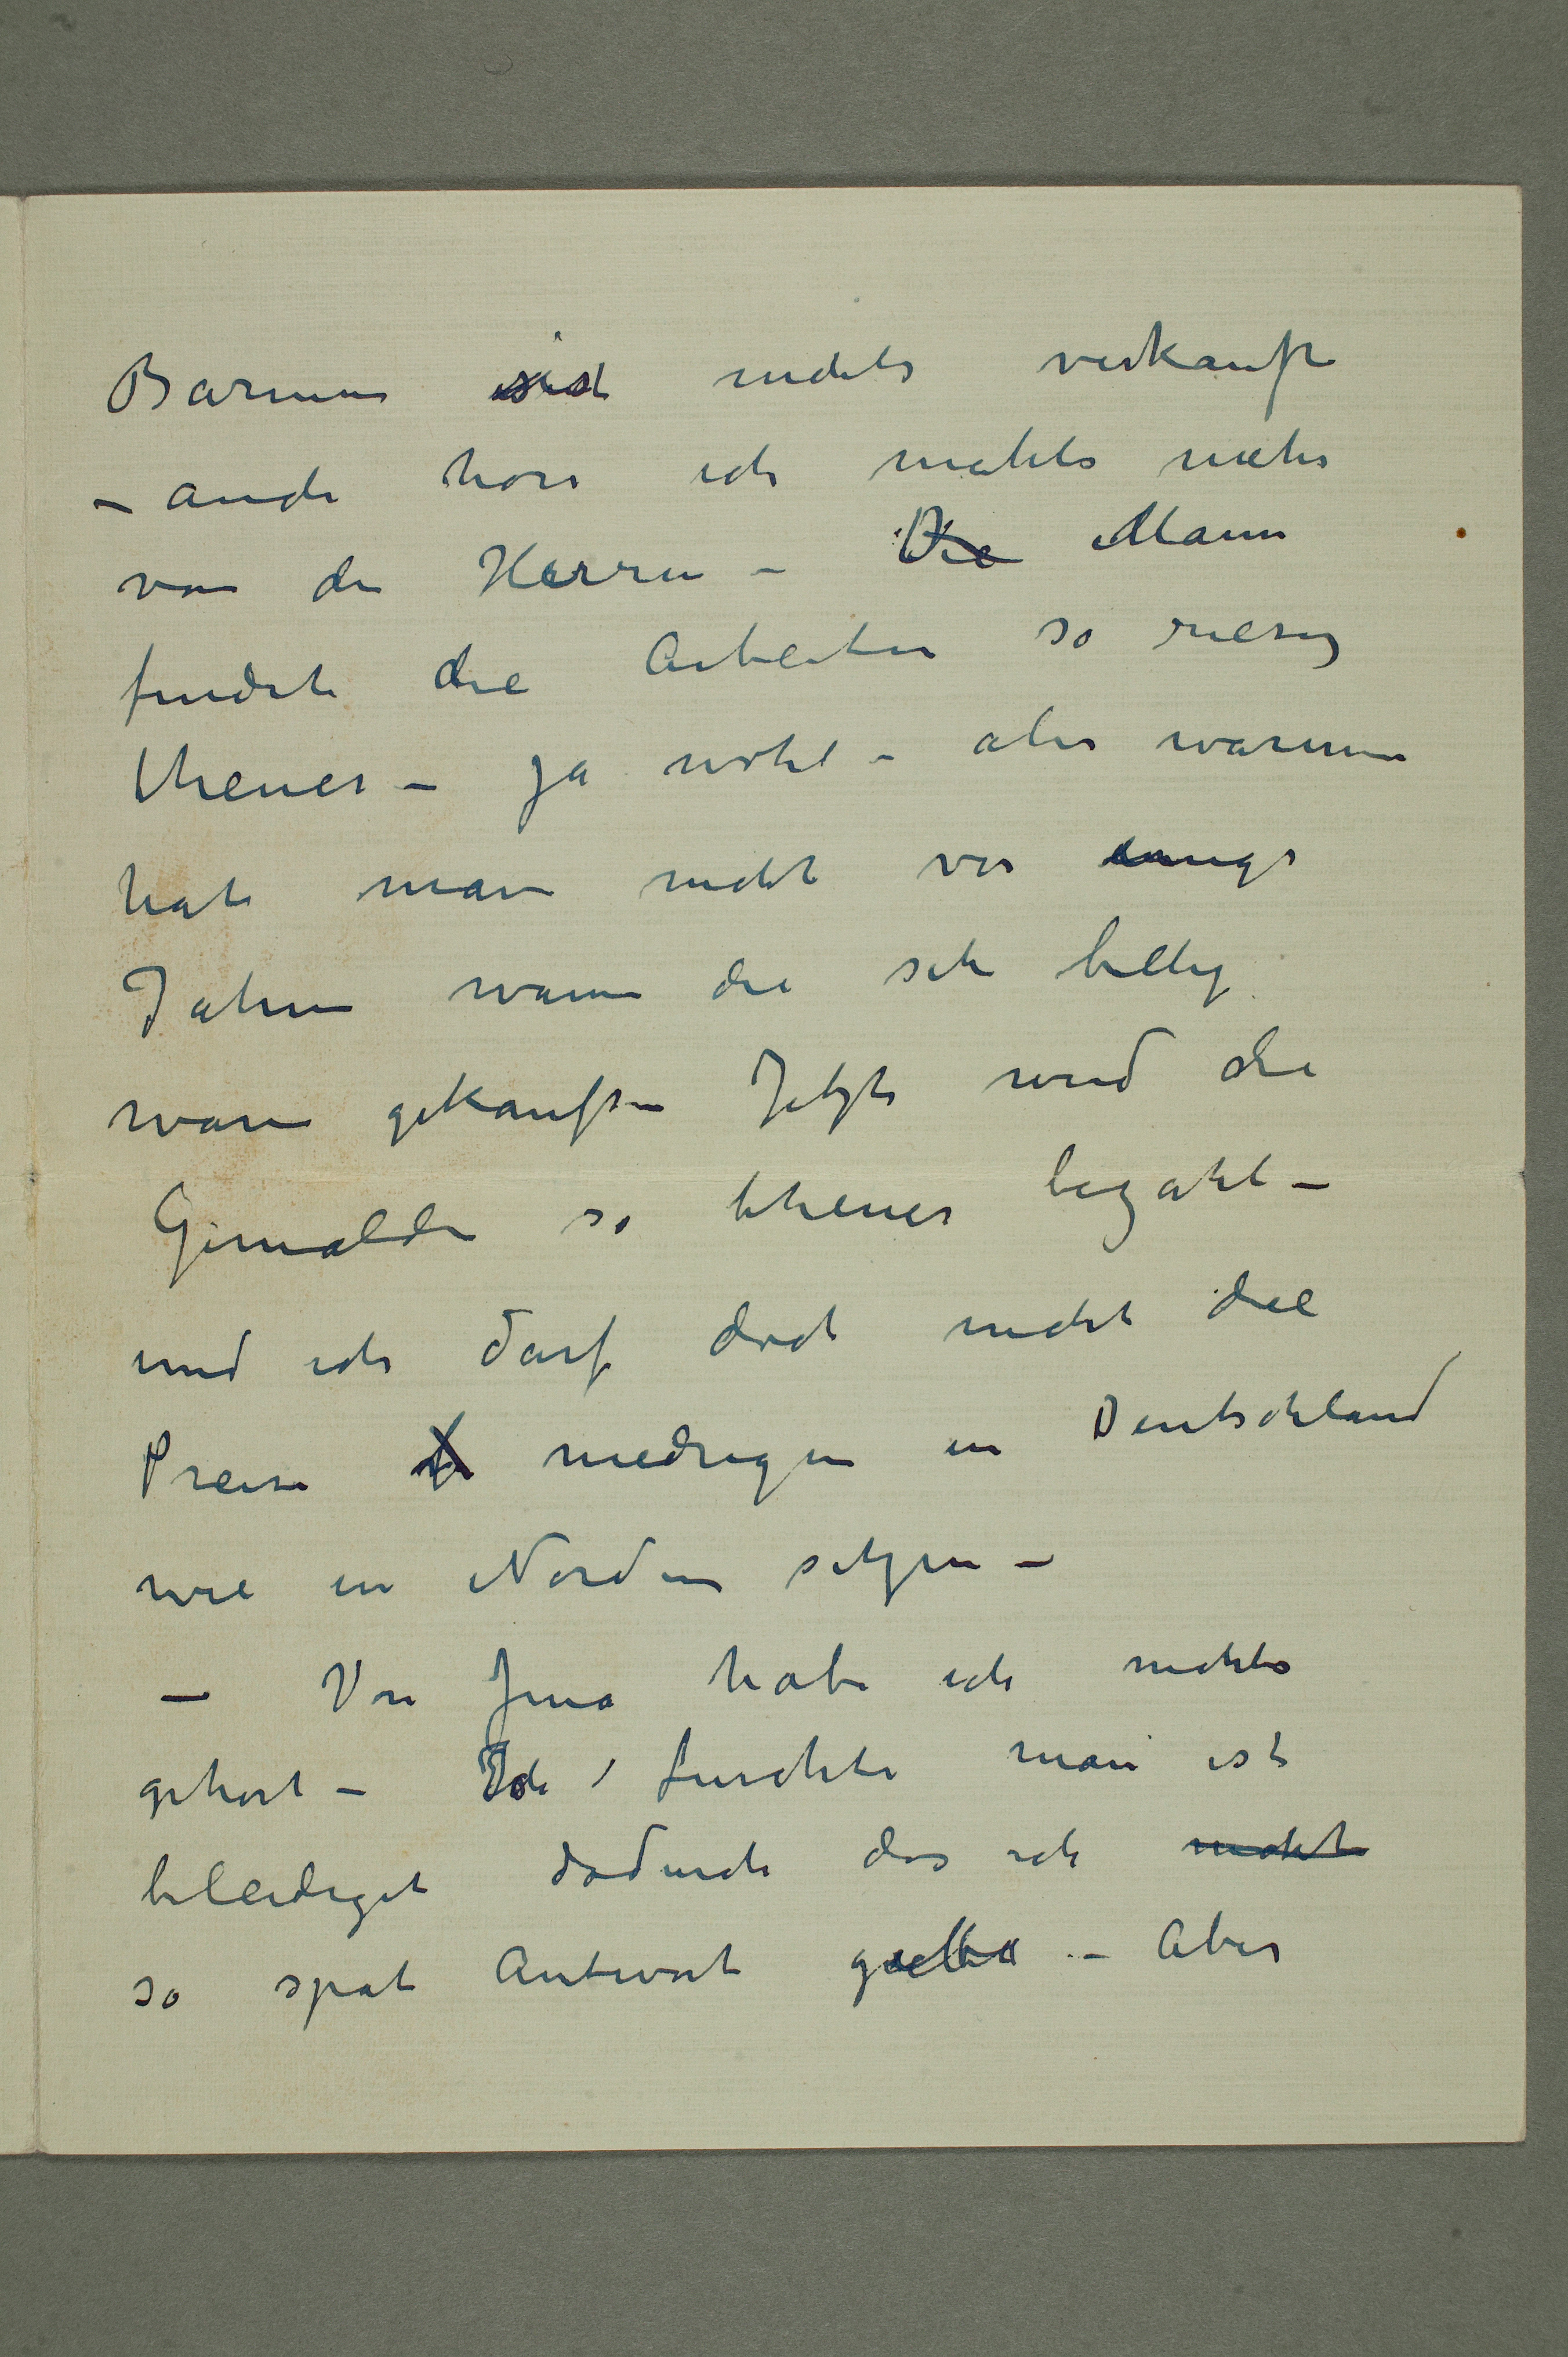 Barmen ist nichts verkauft
– auch hore ich nichts mehr
von die Herren – Die Mann
findet die Arbeiten so riesig
theuer – Ja wohl – aber warum
hat man nicht vor einige
Jahren wann die sehr billig
waren gekauft – Jetzt wird die
Gemälde so theuer bezahlt –
und ich darf doch nicht die
Preise niedrigen in Deutschland
wie in Norden setzen –
– Von Jena habe ich nichts
gehört – Ich furchte man ist
beleidiget dadurch das ich nicht
so spät Antwort – Aber